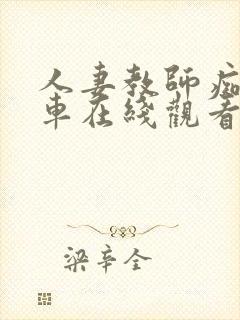 人妻教師痴
車在綫觀看
梁辛全